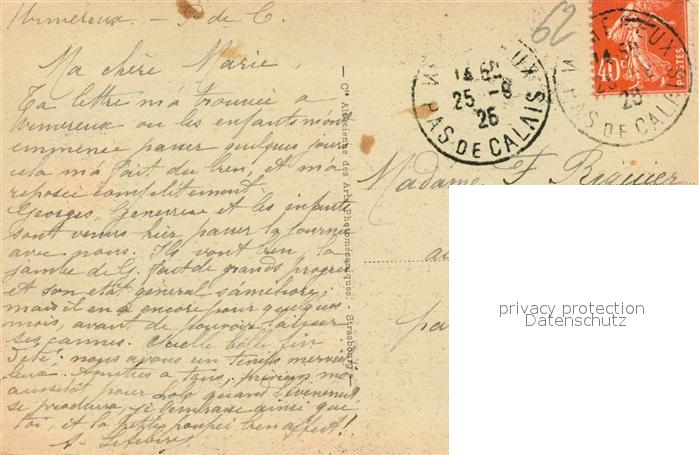 Wimereux. - P. de C.
62
Ma chère Marie,
Ta lettre m'a trouvée a
Wimereux ou les enfants m'ont
emmenée passer quelques jours
cela m'a fait du bien, et m'a
reposée complètement.
Georges, Generrine et les enfants
sont venus hier passer la journée
avec nous. Ils vont bien, la
jambe de G. fait de grands progrès
et son état général s'améliore,
mais il en a encore pour quelques
mois, avant de pouvoir laisser
ses cannes. Quelle belle fin
d'été, nous avons un temps merveil
leux. Amitiés a tous, préviens moi
aussitôt pour Lola quand l'évènement
se produira, je t'embrasse ainsi que
toi, et la petite poupée bien affect!
A. Lefebvre
Cie Alsacienne des Arts Photomécaniques, Strasbourg
WIMEREUX
14 50
25 -9
26
PAS DE CALAIS
WIMEREUX
14 50
25
26
PAS DE CALAIS
40c
POSTES
Madame F Riquier
au
pa
privacy protection
Datenschutz